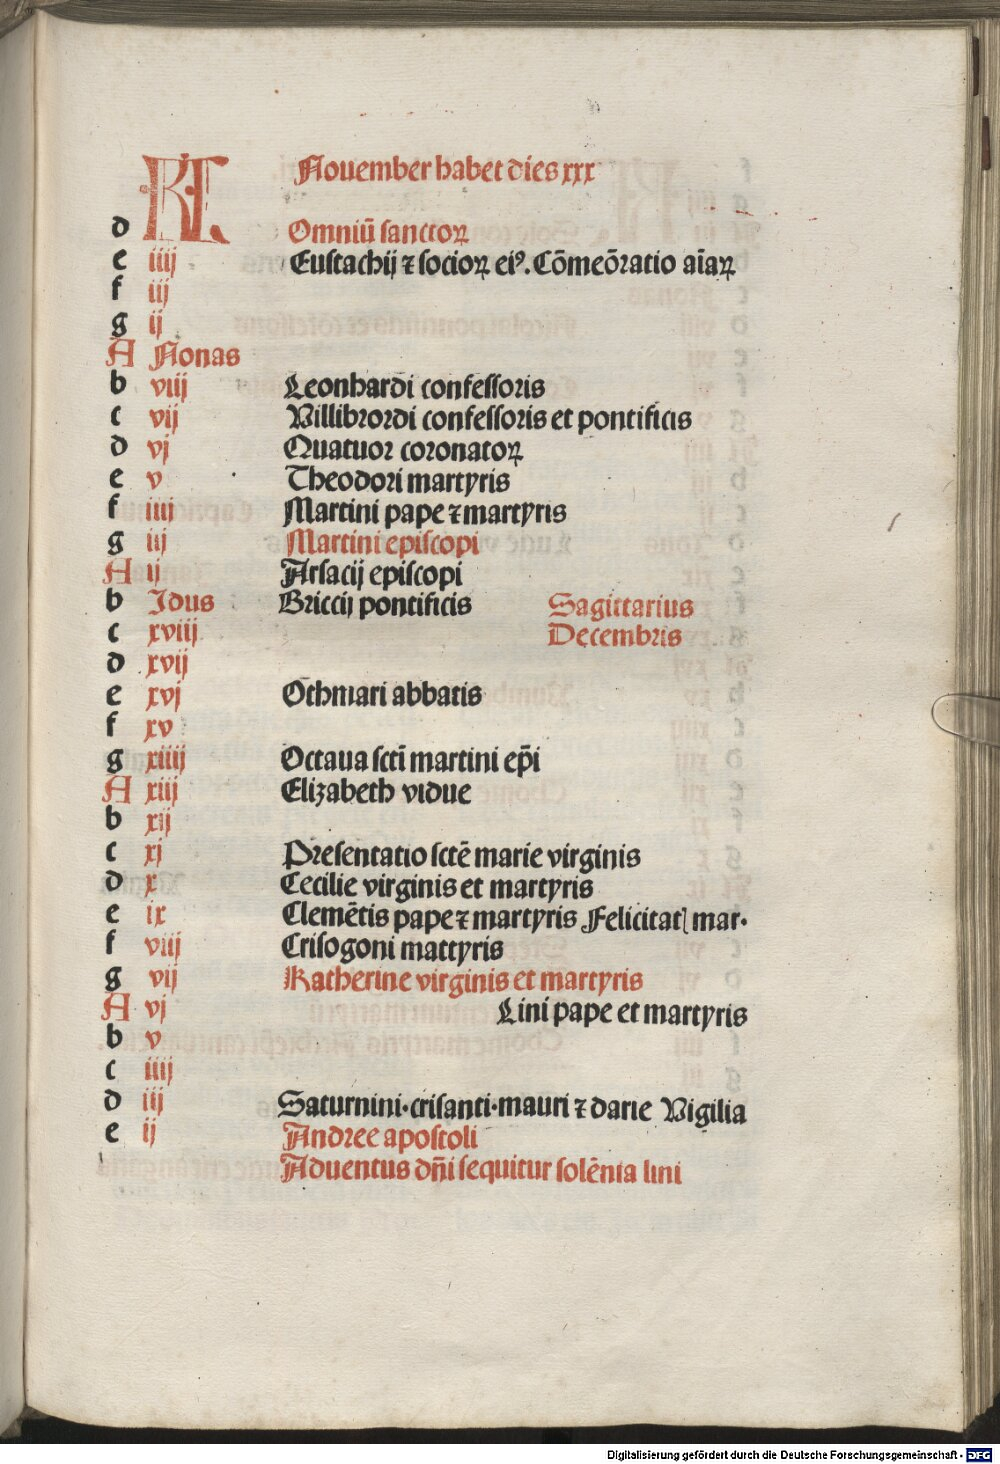 KL Nouember habet dies xxx
d Omniū sanctoꝝ
e iiij Eustachij ⁊ socioꝝ eiꝰ. Cōmeōratio aīaꝝ
f iij
g ij
A Nonas
b viij Leonhardi confessoris
c vij Villibrordi confessoris et pontificis
d vj Quatuor coronatoꝝ
e v Theodori martyris
f iiij Martini pape ⁊ martyris
g iij Martini episcopi
A ij Arsacij episcopi
b Idus Briccij pontificis Sagittarius
c xviij Decembris
d xvij
e xvj Othmari abbatis
f xv
g xiiij Octaua sctī martini ep̄i
A xiij Elizabeth vidue
b xij
c xj Presentatio sctē marie virginis
d x Cecilie virginis et martyris
e ix Clemētis pape ⁊ martyris Felicitatꝭ mar.
f viij Crisogoni mattyris
g vij Katherine virginis et martyris
A vj Lini pape et martyris
b v
c iiij
d iij Saturnini·crisanti·mauri ⁊ darie Vigilia
e ij Andree apostoli
Aduentus dn̄i sequitur solēnia lini
Digitalisierung gefördert durch die Deutsche Forschungsgemeinschaft - DFG